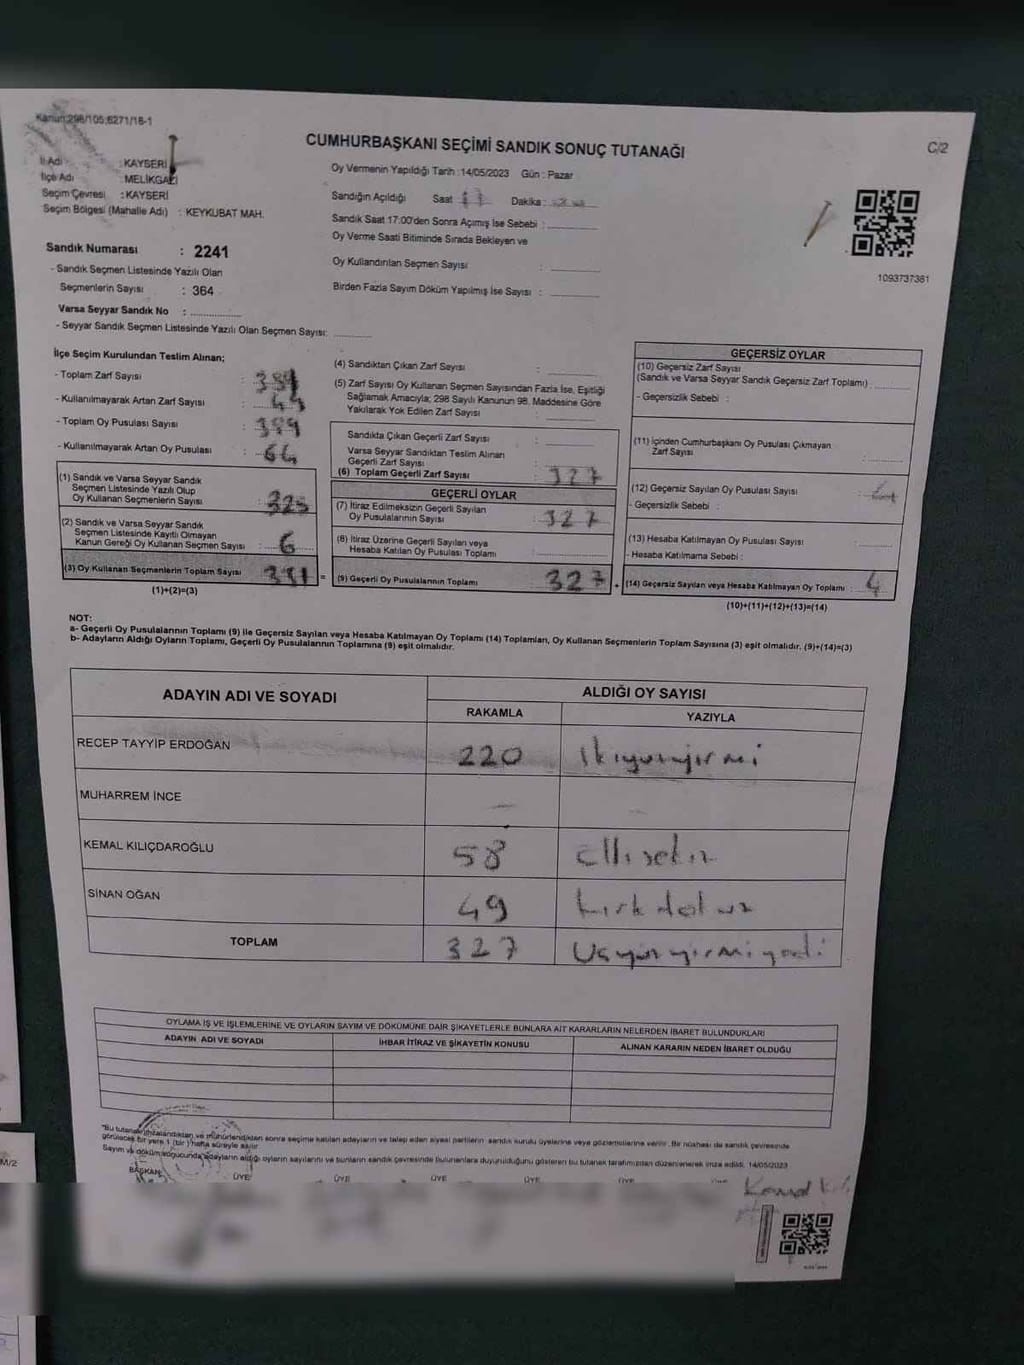 Kanun:298/105;6271/18-1
C/2
CUMHURBAŞKANI SEÇİMİ SANDIK SONUÇ TUTANAĞI
İl Adı : KAYSERİ
İlçe Adı : MELİKGAZİ
Seçim Çevresi : KAYSERİ
Seçim Bölgesi (Mahalle Adı) : KEYKUBAT MAH.
Oy Vermenin Yapıldığı Tarih : 14/05/2023 Gün : Pazar
Sandığın Açıldığı Saat Dakika :
Sandık Saat 17:00'den Sonra Açımış İse Sebebi :
Oy Verme Saati Bitiminde Sırada Bekleyen ve
Oy Kullandırılan Seçmen Sayısı :
Birden Fazla Sayım Döküm Yapılmış İse Sayısı :
1093737381
Sandık Numarası : 2241
- Sandık Seçmen Listesinde Yazılı Olan
Seçmenlerin Sayısı : 364
Varsa Seyyar Sandık No :
- Seyyar Sandık Seçmen Listesinde Yazılı Olan Seçmen Sayısı:
İlçe Seçim Kurulundan Teslim Alınan;
- Toplam Zarf Sayısı :
- Kullanılmayarak Artan Zarf Sayısı :
- Toplam Oy Pusulası Sayısı :
- Kullanılmayarak Artan Oy Pusulası :
(1) Sandık ve Varsa Seyyar Sandık
Seçmen Listesinde Yazılı Olup
Oy Kullanan Seçmenlerin Sayısı : 325
(2) Sandık ve Varsa Seyyar Sandık
Seçmen Listesinde Kayıtlı Olmayan
Kanun Gereği Oy Kullanan Seçmen Sayısı : 6
(3) Oy Kullanan Seçmenlerin Toplam Sayısı 331 =
(1)+(2)=(3)
(4) Sandıktan Çıkan Zarf Sayısı :
(5) Zarf Sayısı Oy Kullanan Seçmen Sayısından Fazla İse, Eşitliği
Sağlamak Amacıyla; 298 Sayılı Kanunun 98. Maddesine Göre
Yakılarak Yok Edilen Zarf Sayısı :
Sandıkta Çıkan Geçerli Zarf Sayısı :
Varsa Seyyar Sandıktan Teslim Alınan
Geçerli Zarf Sayısı :
(6) Toplam Geçerli Zarf Sayısı 327
GEÇERLİ OYLAR
(7) İtiraz Edilmeksizin Geçerli Sayılan
Oy Pusulalarının Sayısı : 327
(8) İtiraz Üzerine Geçerli Sayılan veya
Hesaba Katılan Oy Pusulası Toplamı :
(9) Geçerli Oy Pusulalarının Toplamı 327 +
GEÇERSİZ OYLAR
(10) Geçersiz Zarf Sayısı
(Sandık ve Varsa Seyyar Sandık Geçersiz Zarf Toplamı)
- Geçersizlik Sebebi :
(11) İçinden Cumhurbaşkanı Oy Pusulası Çıkmayan
Zarf Sayısı :
(12) Geçersiz Sayılan Oy Pusulası Sayısı :
- Geçersizlik Sebebi :
(13) Hesaba Katılmayan Oy Pusulası Sayısı :
- Hesaba Katılmama Sebebi :
(14) Geçersiz Sayılan veya Hesaba Katılmayan Oy Toplamı : 4
(10)+(11)+(12)+(13)=(14)
NOT:
a- Geçerli Oy Pusulalarının Toplamı (9) ile Geçersiz Sayılan veya Hesaba Katılmayan Oy Toplamı (14) Toplamları, Oy Kullanan Seçmenlerin Toplam Sayısına (3) eşit olmalıdır. (9)+(14)=(3)
b- Adayların Aldığı Oyların Toplamı, Geçerli Oy Pusulalarının Toplamına (9) eşit olmalıdır.
ADAYIN ADI VE SOYADI
ALDIĞI OY SAYISI
RAKAMLA YAZIYLA
RECEP TAYYİP ERDOĞAN 220 ikiyüzyirmi
MUHARREM İNCE – –
KEMAL KILIÇDAROĞLU 58 ellisekiz
SİNAN OĞAN 49 kırkdokuz
TOPLAM 327 Üçyüzyirmiyedi
OYLAMA İŞ VE İŞLEMLERİNE VE OYLARIN SAYIM VE DÖKÜMÜNE DAİR ŞİKAYETLERLE BUNLARA AİT KARARLARIN NELERDEN İBARET BULUNDUKLARI
ADAYIN ADI VE SOYADI İHBAR İTİRAZ VE ŞİKAYETİN KONUSU ALINAN KARARIN NEDEN İBARET OLDUĞU
"Bu tutanak imzalandıktan ve mühürlendikten sonra seçime katılan adayların ve talep eden siyasi partilerin sandık kurulu üyelerine veya gözlemcilerine verilir. Bir nüshası da sandık çevresinde
görülecek bir yere 1 (bir) hafta süreyle asılır.
Sayım ve döküm sonucunda adayların aldığı oyların sayılarını ve bunların sandık çevresinde bulunanlara duyurulduğunu gösteren bu tutanak tarafımızdan düzenlenerek imza edildi. 14/05/2023
BAŞKAN ÜYE ÜYE ÜYE ÜYE ÜYE
M/2